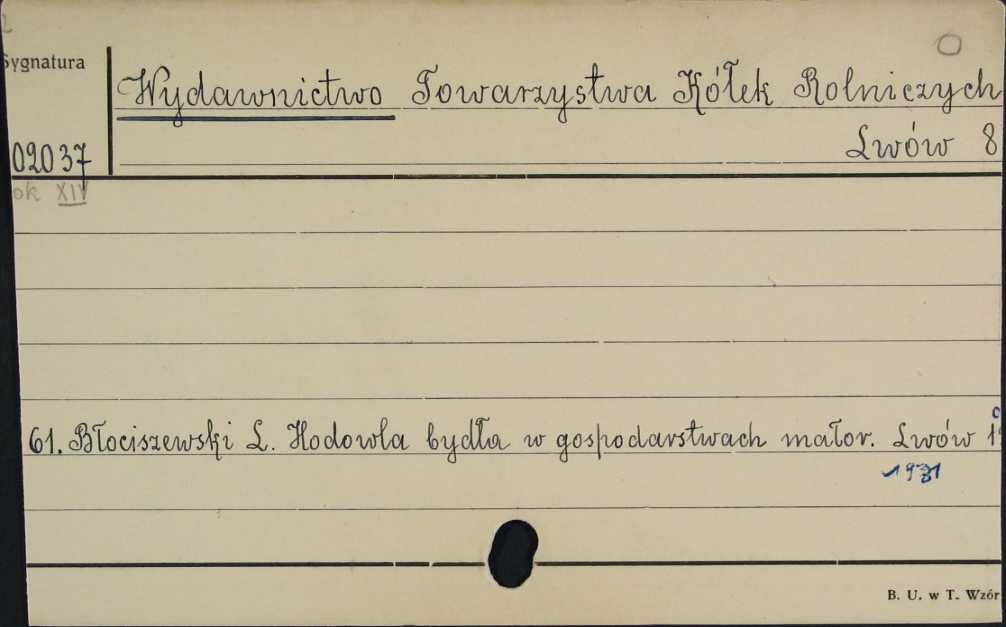 Sygnatura
Wydawnictwo Towarzystwa Kółek Rolniczych
Lwów 8
02037
ok XIV
61. Błociszewski L. Hodowla bydła w gospodarstwach małor. Lwów
1931
B. U. w T. Wzór